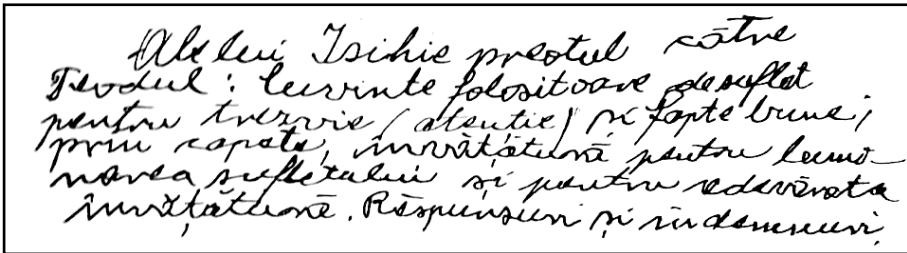 Ale lui Isihie preotul către
Teodul: Cuvinte folositoare de suflet
pentru trezvie (atenție) și fapte bune;
prin capete, învățătură pentru lumi-
narea sufletului și pentru adevărata
învățătură. Răspunsuri și îndemnuri.